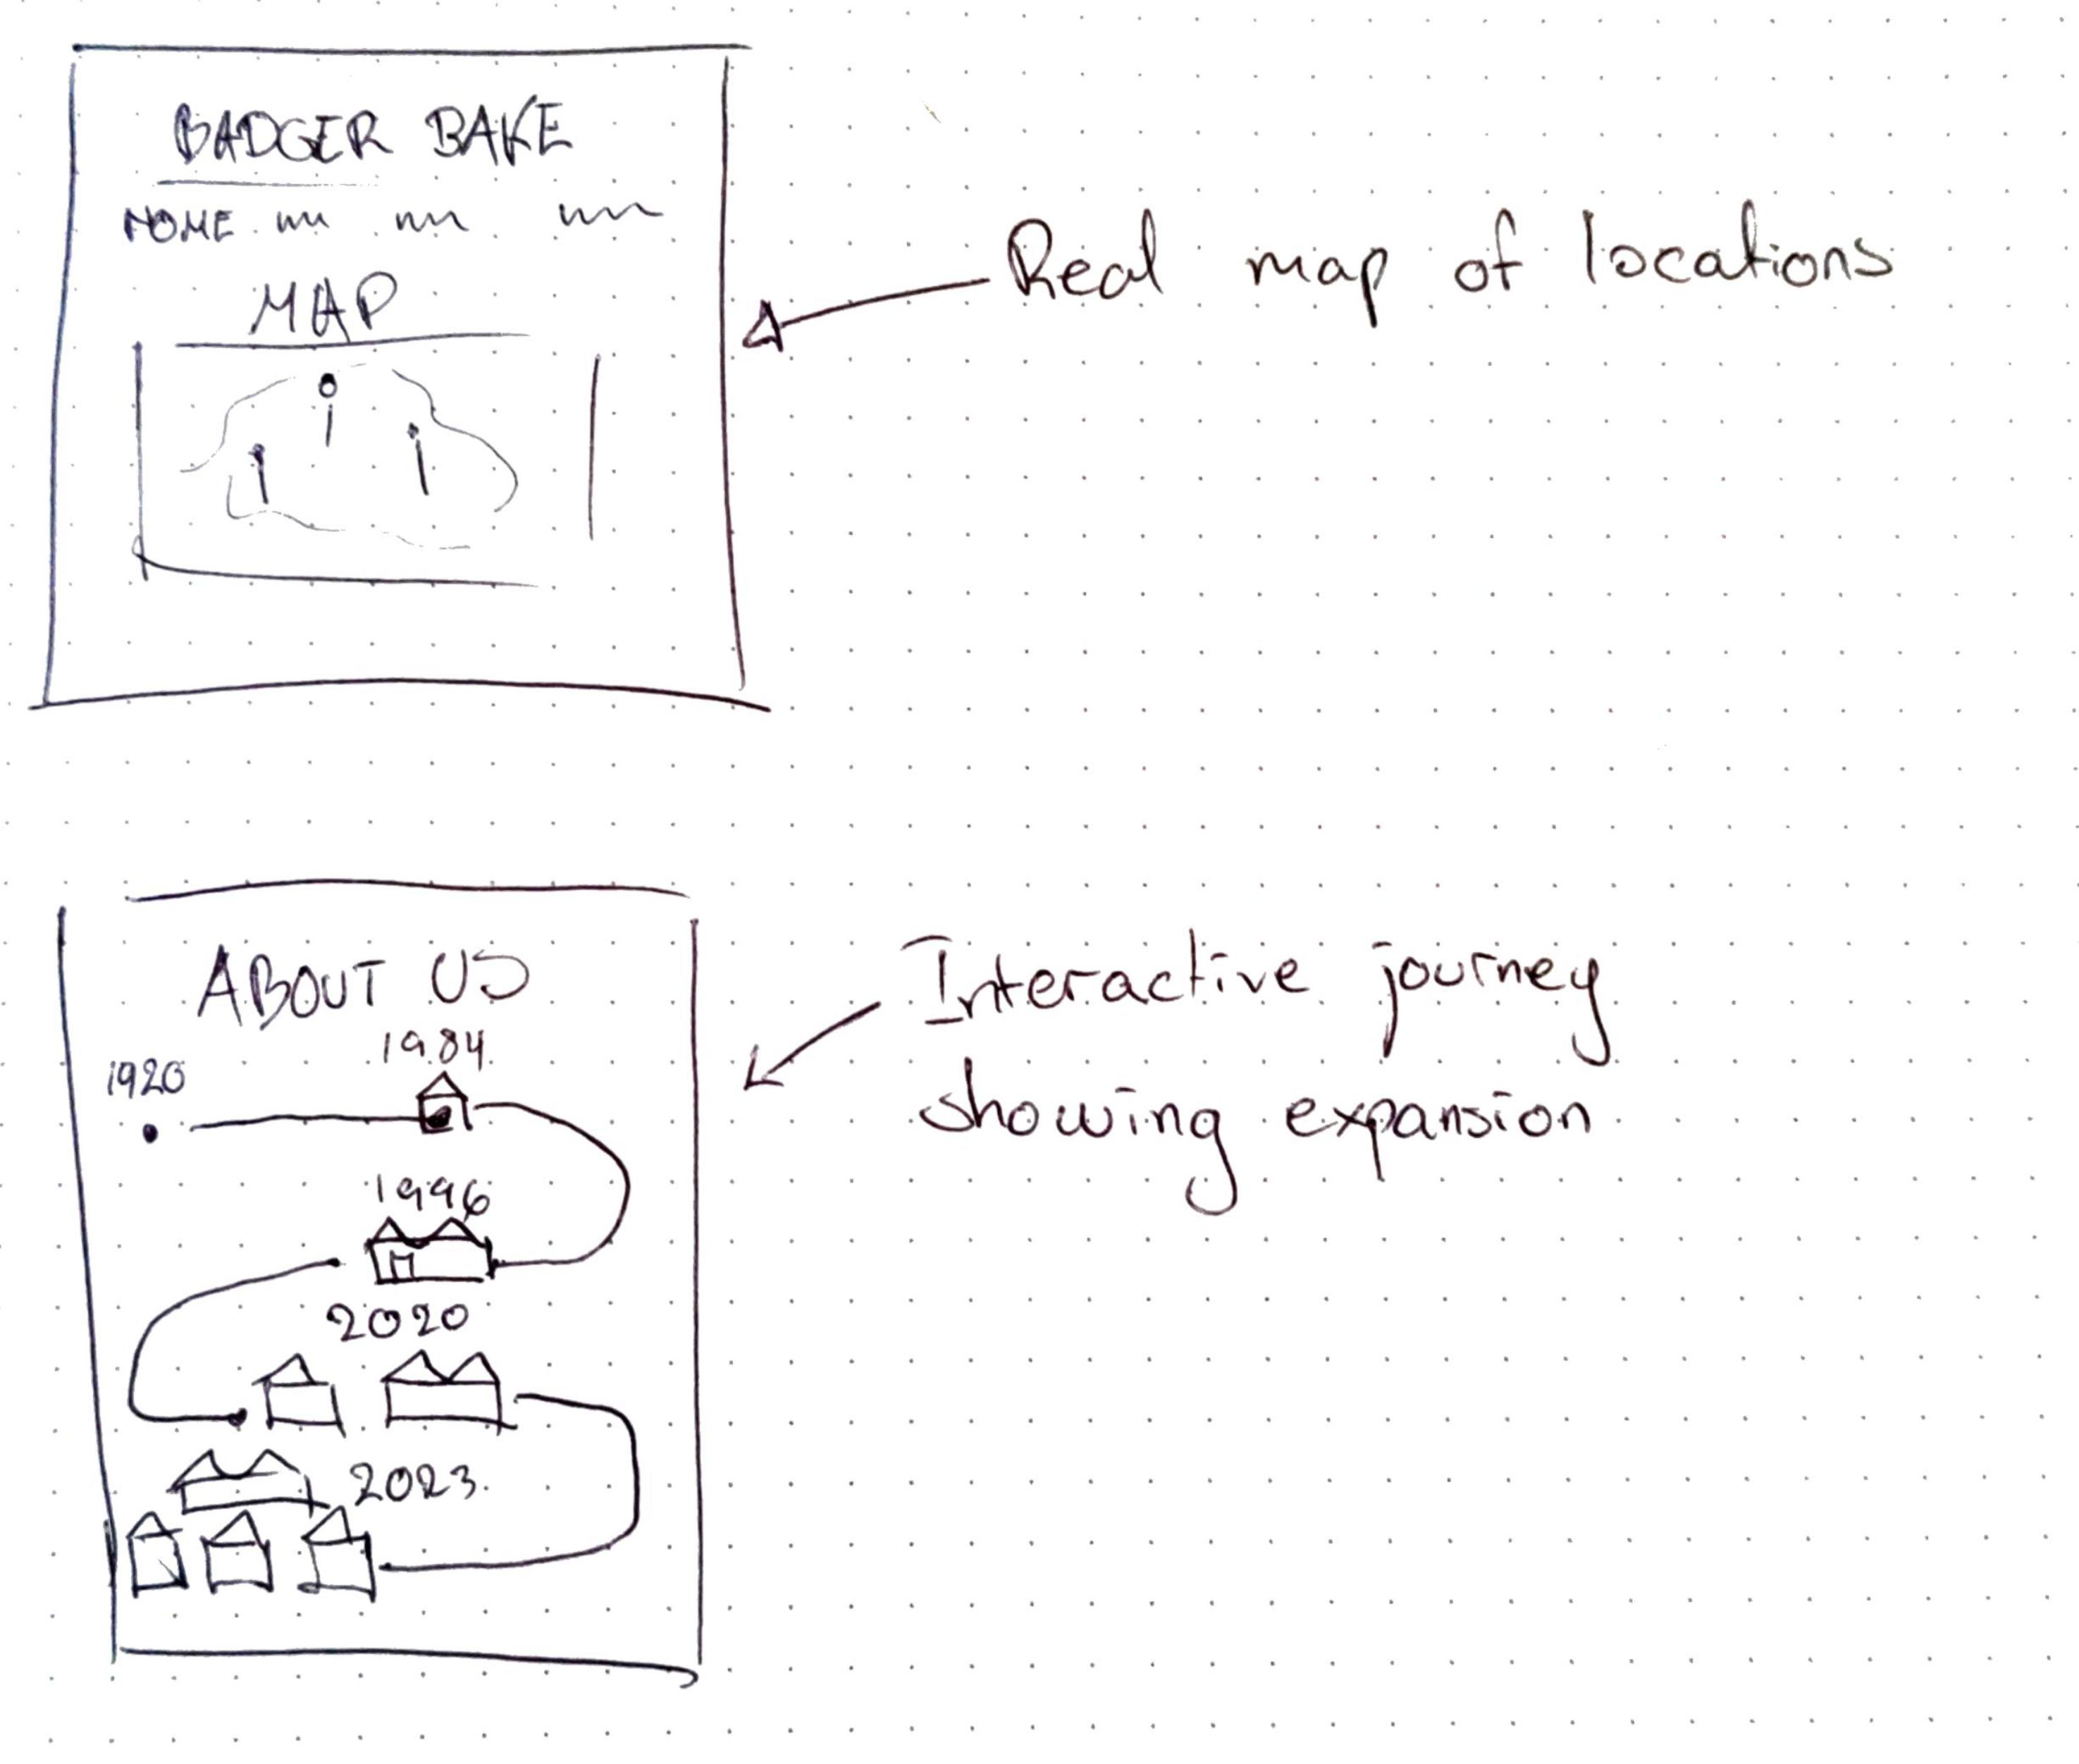 BADGER BAKE
HOME
MAP
Real map of locations
ABOUT US
1984
1920
1996
2020
2023
Interactive journey
showing expansion